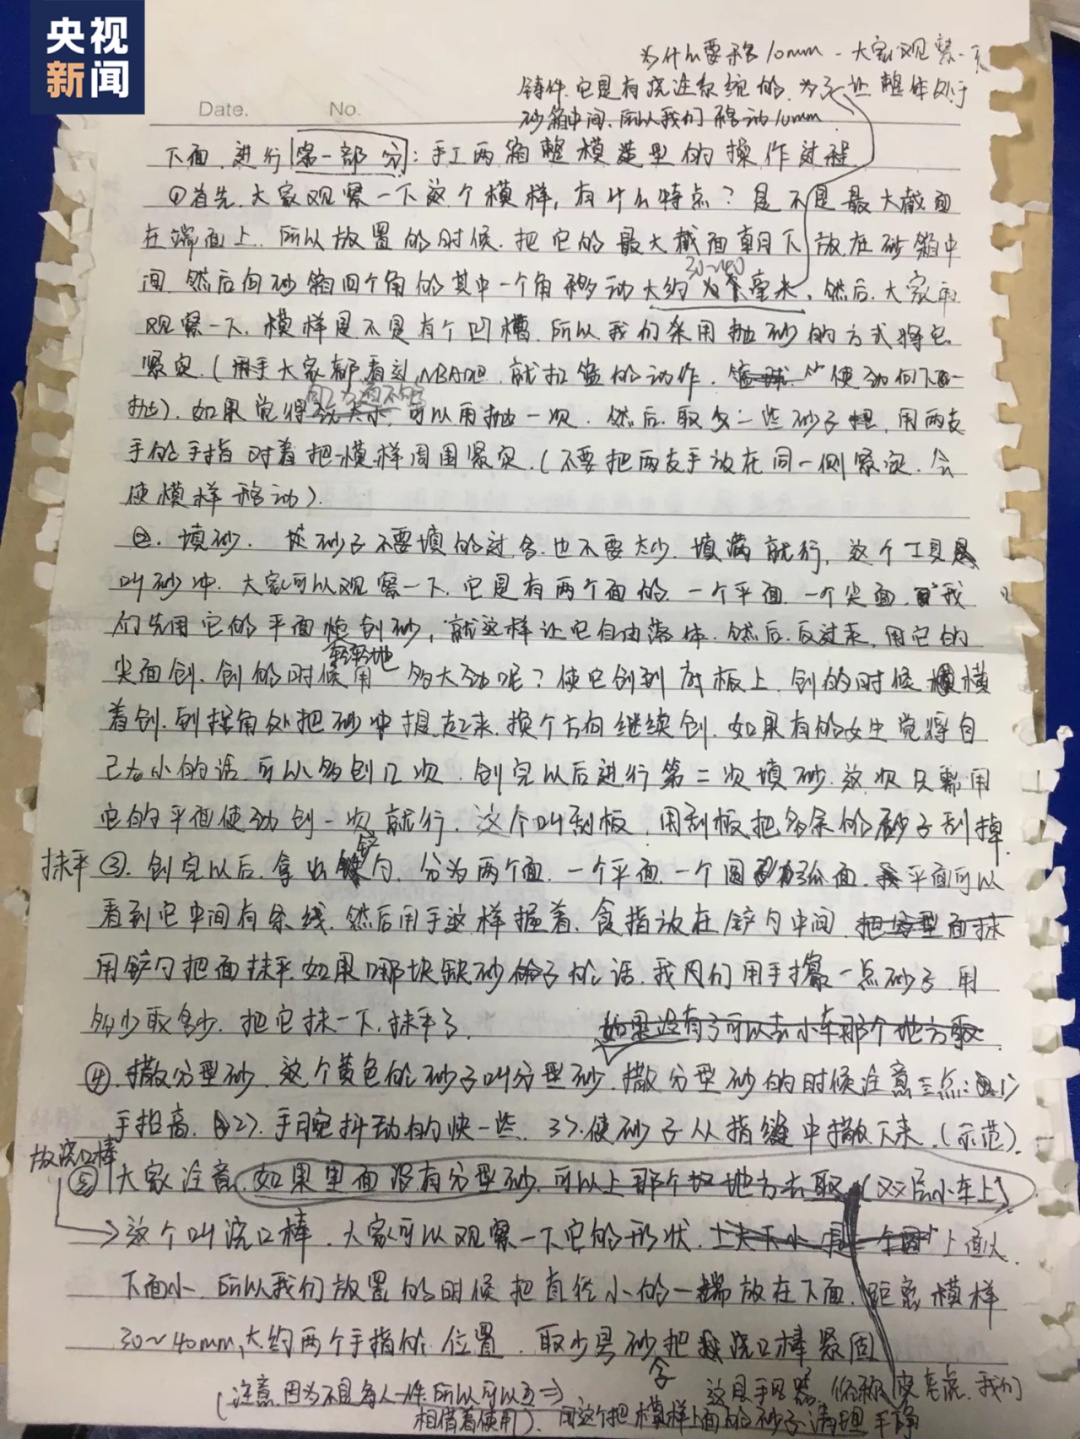 央视
新闻
为什么要移10mm-大家观察一下
铸件,它是有浇注系统的,为了让整体处于
砂箱中间,所以我们移动10mm
Date. No.
下面,进行第一部分:手工两箱整模造型的操作过程
①首先,大家观察一下这个模样,有什么特点?是不是最大截面
在端面上,所以放置的时候,把它的最大截面朝下放在砂箱中
间,然后向砂箱四个角的其中一个角移动大约为毫米,然后,大家再
30~40
观察一下,模样是不是有个凹槽,所以我们采用抛砂的方式将它
紧实(用手大家都看过NBA吧,就扣篮的动作,使劲向下一
抛),如果觉得可以再抛一次,然后,取少一些砂子,用两支
手的手指对着把模样周围紧实,(不要把两支手放在同一侧紧实,会
使模样移动).
②.填砂.砂子不要填的过多,也不要太少,填满就行,这个工具
叫砂冲.大家可以观察一下,它是有两个面的,一个平面,一个尖面,我
们先用它的平面刨砂,就这样让它自由落体,然后,反过来,用它的
轻轻地
尖面刨,刨的时候用多大劲呢?使它刨到底板上,刨的时候横
着刨,到拐角处把砂冲提起来,换个方向继续刨.如果有的女生觉得自
己力小的话,可以多刨几次,刨完以后进行第二次填砂,这次只需用
它的平面使劲刨一次就行.这个叫刮板,用刮板把多余的砂子刮掉
抹平③.刨完以后,拿出铲勺,分为两个面,一个平面,一个圆弧面,平面可以
看到它中间有条线,然后用手这样握着,食指放在铲勺中间,把分型面抹
用铲勺把面抹平,如果哪块缺砂子的话,我们用手撮一点砂子,用
多少取多少,把它抹一下,抹平了.如果没有了可以去小车那个地方取
④.撒分型砂,这个黄色的砂子叫分型砂,撒分型砂的时候注意三点:1)
手抬高.2).手腕抖动的快一些.3).使砂子从指缝中撒下来.(示范).
放浇口棒
⑤大家注意,如果里面没有分型砂,可以上那个地方去取(双层小车上)
这个叫浇口棒,大家可以观察一下它的形状,上面大
下面小,所以我们放置的时候把直径小的一端放在下面,距离模样
30~40mm,大约两个手指的位置,取少量砂把浇口棒紧固
(注意,因为不是每人一件,所以可以互相借着使用).
这是手风器,俗称皮老虎,我们
用这个把模样上面的砂子清理干净